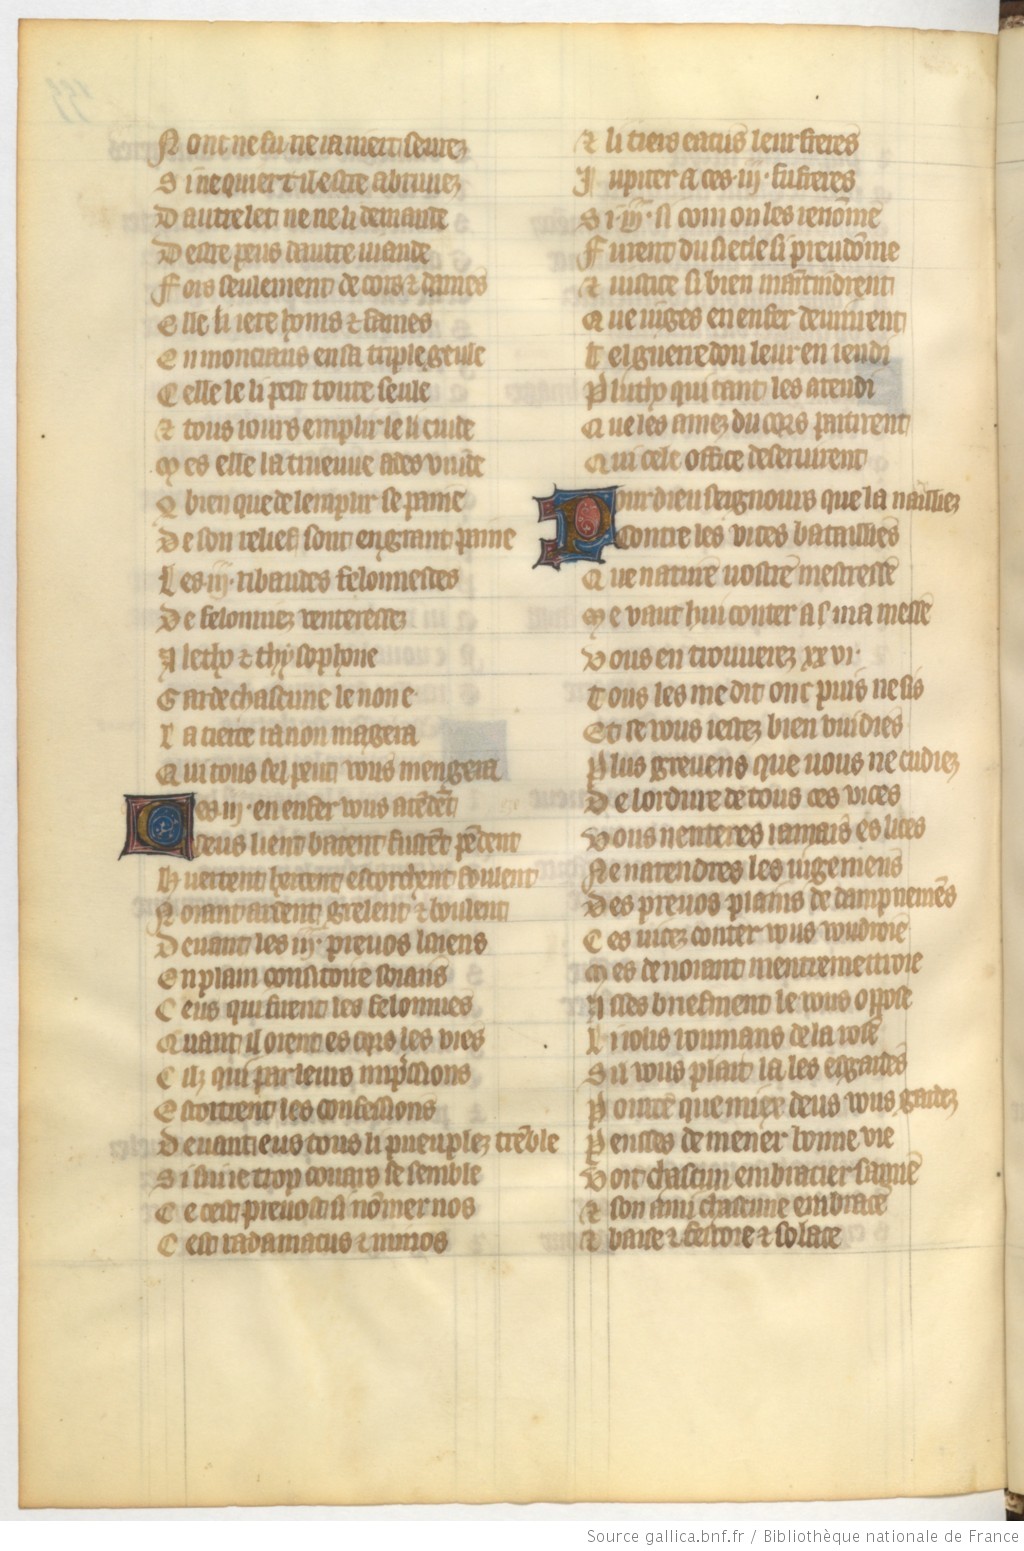 N ont ne fu de la mere seurez
S i ne quiert il estre abriuez
D autre let ne ne li demande
D estre peus dautre uiande
F ors seulement de cors & dames
E lle li iete homs & fames
E n monciaus en sa triple geule
C elle le li pest toute seule
& tous iours emplir le li cuide
M es elle la treuue ades vuide
Q bien que de lemplir se paine
D e son relief sont en grant paine
L es .iij. ribaudes felonnesses
D e felonniez venteressez
A letho & thysophone
G ar de chascune le none
L a tierce ra non magera
Q ui tous sel peut vous mengera
C es .iij. en enfer vous atēdēt
C eus lient batent fustēt pēdent
H uertent hercent escorchent foulent
N oiant ardent greslent & boulent
D euant les .iij. preuos laiens
E n plain consitoire seians
C eus qui firent les felonnies
Q uant il orent es cors les vies
C ilz qui par leurs impressions
E scortrent les confessions
D euant eus tous li pueuplez trēble
S i suie trop couars se semble
C e cest preuost si nōmer nos
C est radamatus & minos
& li tiers eacus leur freres
J upiter a ces .iij. fu freres
S i .iij. si com on les renōme
F urent du siecle si preudōme
& iustice si bien maītindrent
Q ue iuges en enfer deuinrent
T el guenedon leur en rendi
P lutho qui tant les atendi
Q ue les amez du cors partirent
Q ui cele office deseruirent
P our dieu seignours que la naillez
C ontre les vices bataillies
Q ue nature nostre mestresse
M e vaut hui conter a s ma messe
V ous en trouuerez xxvi.
T ous les me dit onc puis ne sis
Et se vous iestez bien vuidies
P lus greuens que vous ne cudiez
D e lordure de tous ces vices
V ous nenteres iamais es lices
N e natendres les iugemens
D es preuos plains de dampnemēs
C es uicez conter vous voudroie
M es de noiant mentremettroie
A sses briefment le vous oppose
L i iolis roumans de la rose
S il vous plait la les esgardes
P ource que miex deus vous gardez
P ensses de mener bonne vie
V oit chascun embracier samie
& son ami chascune embrace
& baise & festoie & solace
Source gallica.bnf.fr / Bibliothèque nationale de France